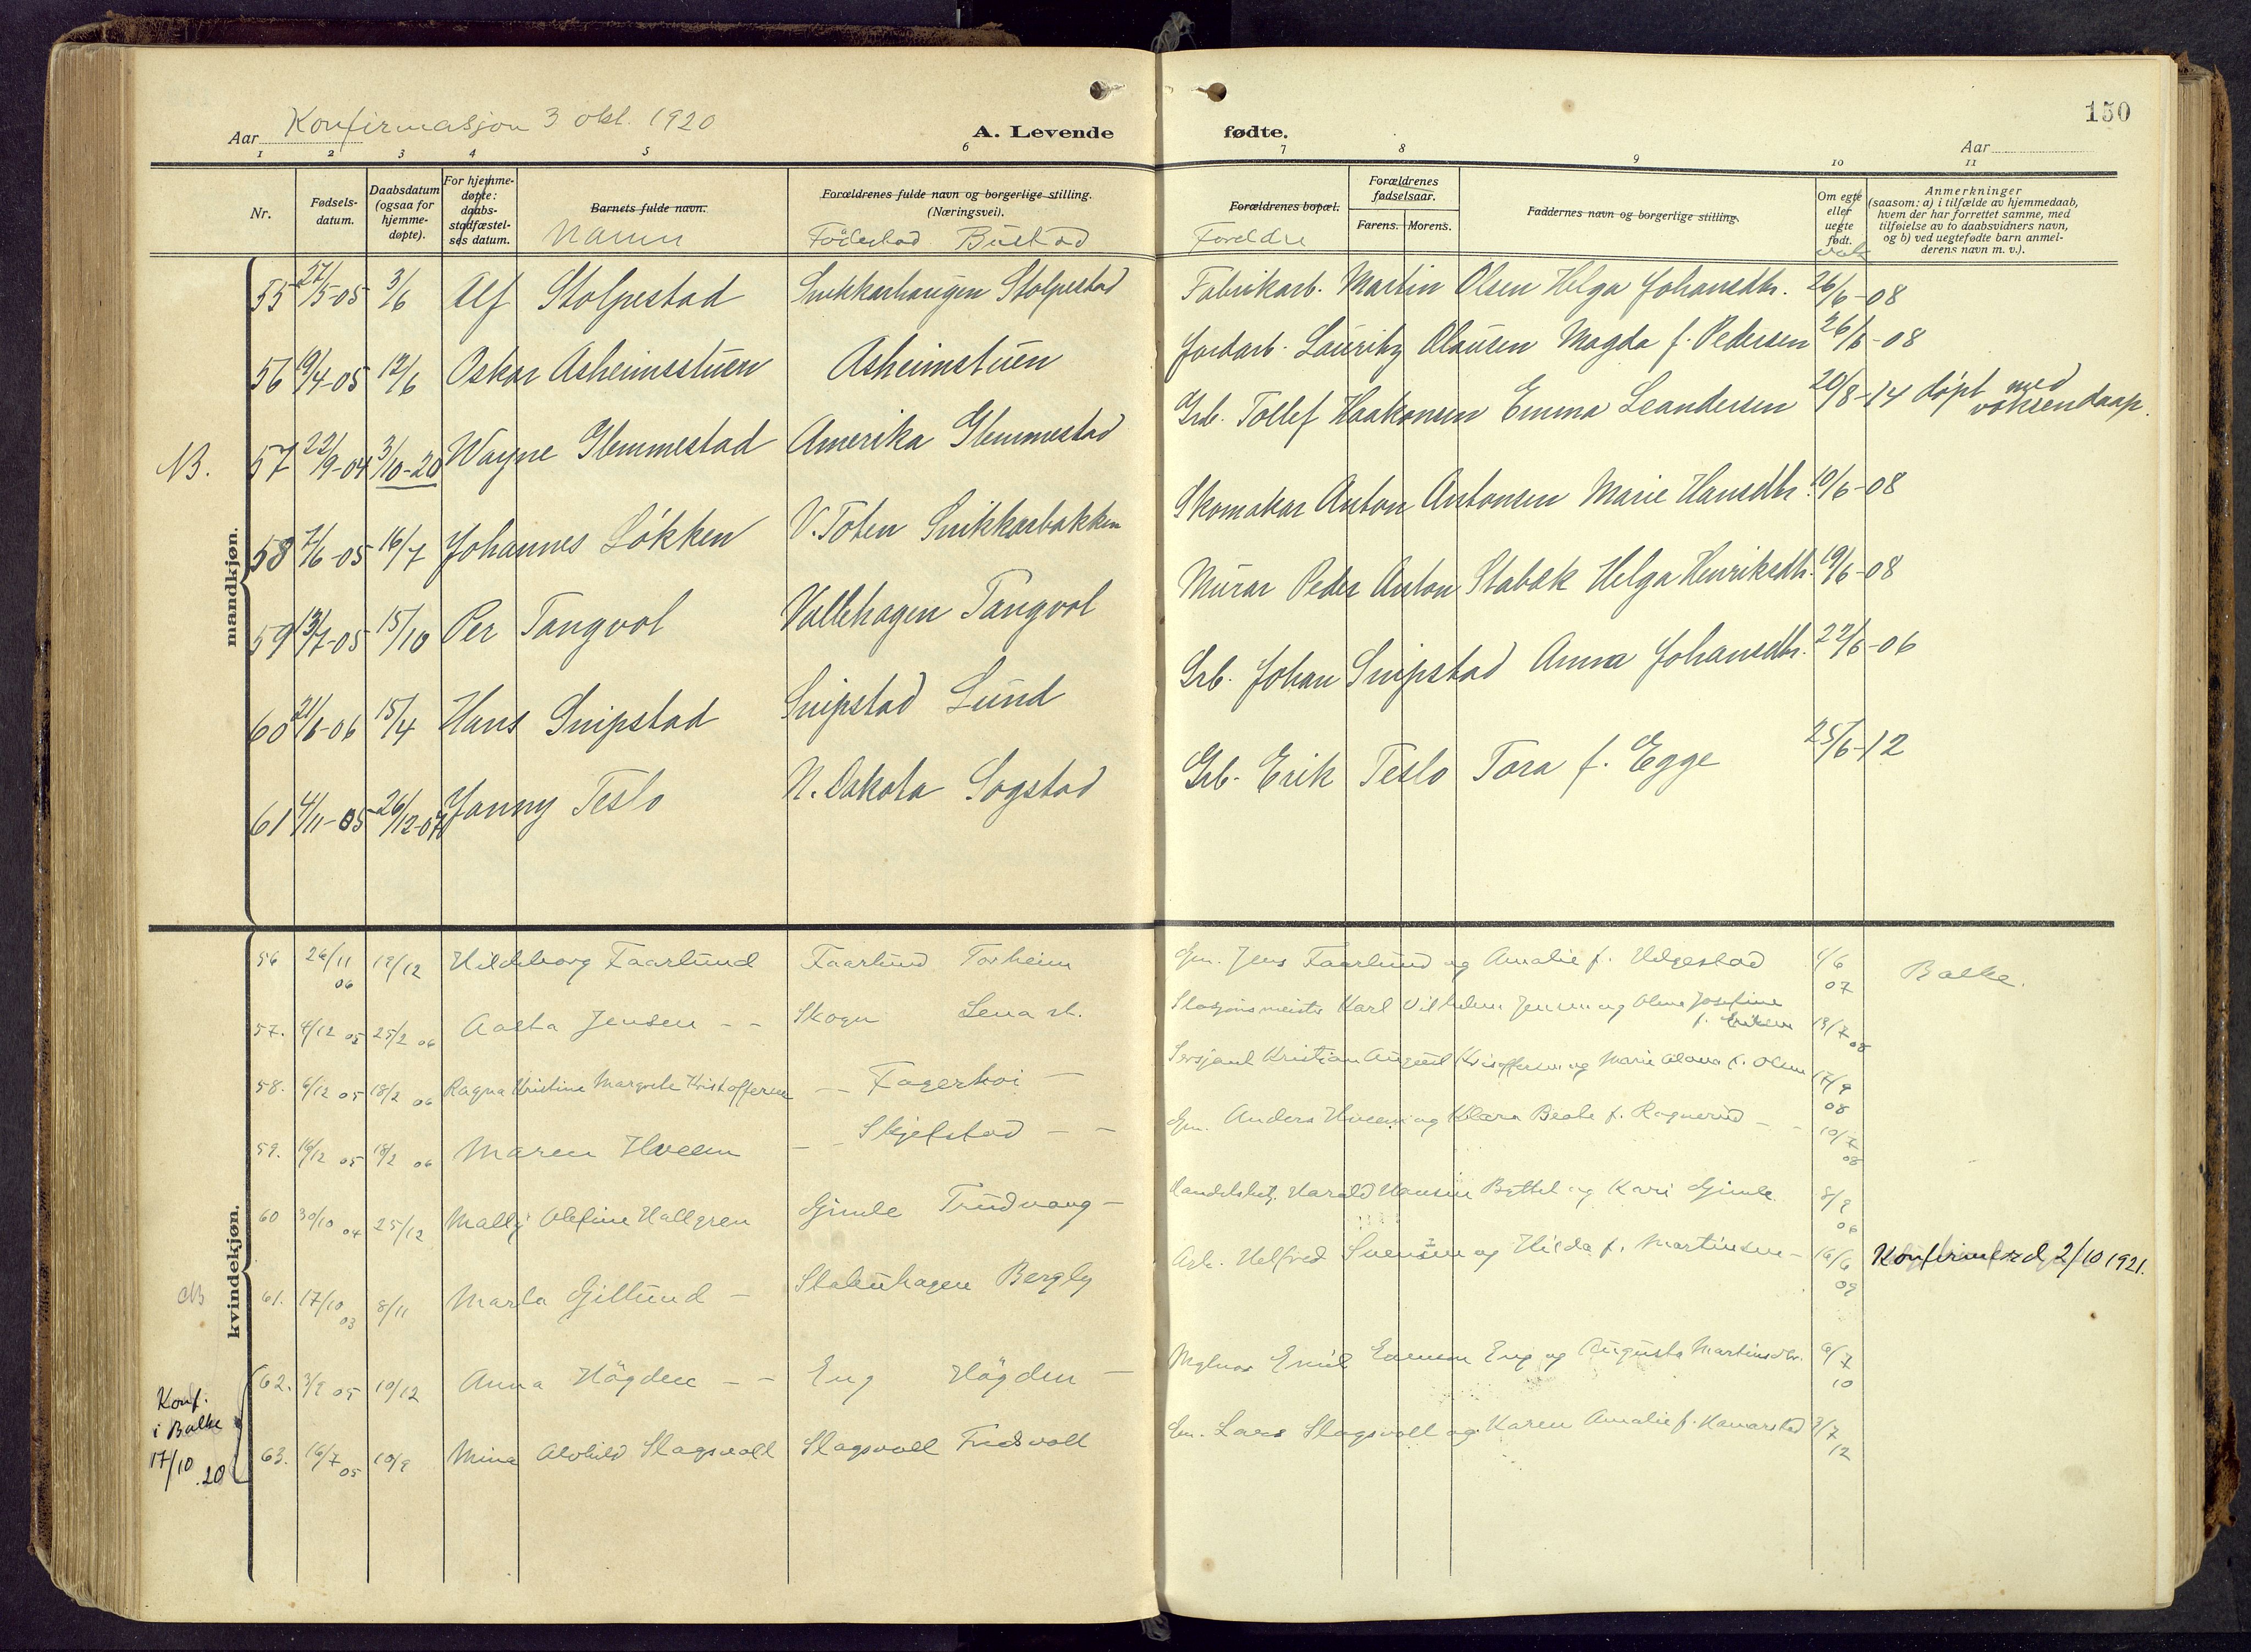 150
Aar Konfirmasjon 3 okt. 1920
A. Levende fødte.
Aar
1 2 3 4 5 6 7 8 9 10 11
Nr.
Fødsels-
datum.
Daabsdatum
(ogsaa for
hjemme-
døpte).
For hjemme-
døpte:
daabs-
stadfæstel-
ses datum.
Barnets fulde navn.
Namn
Forældrenes fulde navn og borgerlige stilling.
(Næringsvei).
Fødestad Bustad
Forældrenes bopæl.
Foreldre
Forældrenes
fødselsaar.
Farens. Morens.
Faddernes navn og borgerlige stilling.
Om egte
eller
uegte
født.
Anmerkninger
(saasom: a) i tilfælde av hjemmedaab,
hvem der har forrettet samme, med
tilføielse av to daabsvidners navn,
og b) ved uegtefødte barn anmel-
derens navn m. v.).
mandkjøn.
55 27/5-05 3/6 Alf Stolpestad Snikkarhaugen Stolpestad Fabrikarb. Martin Olsen Helga Johansdtr. 26/6-08
56 19/4-05 12/6 Oskar Asheimsstuen Asheimstuen Jordarb. Lauritz Olausen Magda f. Pedersen 26/6-08
NB. 57 22/9-04 3/10-20 Wayne Glemmestad Amerika Glemmestad Grb. Tollef Haakonsen Emma Leandersen 20/8-14 døpt med
voksendaap.
58 7/6-05 16/7 Johannes Løkken V. Toten Snikkarbakken Skomakar Anton Antonsen Marie Hansdtr. 10/6-08
59 13/7-05 15/10 Per Tangvol Vallehagen Tangvol Murar Peder Anton Stabæk Helga Henriksdtr. 19/6-08
60 21/6-06 15/4 Hans Snipstad Snipstad Lund Grb. Johan Snipstad Anna Johansdtr. 22/6-06
61 4/11-05 26/12-07 Janny Teslo N. Dakota Sogstad Grb. Erik Teslo Tora f. Egge 25/6-12
kvindekjøn.
56 26/11 06 19/12 Hildeborg Faarlund Faarlund Torheim Gm. Jens Faarlund og Amalie f. Helgestad 4/6 07 Balke.
57. 4/12 05 25/2 06 Aasta Jensen - - Skogn Lena st. Stasjonsmeister Karl Vilhelm Jensen og Olene Josefine
f. Eriksen 19/7 08
58. 6/12 05 18/2 06 Ragna Kristine Margrete Kristoffersen - Fagerhoi - Sersjant Kristian August Kristoffersen og Marie f. Olsen 17/9 08
59. 16/12 05 18/2 06 Maren Hveem - - Skjelstad - - Gm. Anders Hveem og Klara Beate f. Rognerud - - 10/7 08
60 30/10 04 25/12 Mally Olefine Hallgren Gimle Trudvang - Harald Hansen og Kari Gimle 8/9 06
NB 61. 17/10 03 8/11 Marta Gillund - Stabuhagen Bergly Arb. Helfred Svensen og Hilda f. Martinsen - 16/6 09 Konfirmerd 2/10 1921.
Konf.
i Balke
17/10 20
62. 3/9 05 10/12 Anna Høgden - - Eng Høgden - Emil Evensen Eng og Augusta Martinsdtr. 6/7 10
63. 16/7 05 10/9 Mina Alvhild Slagsvoll Slagsvoll Fredsvoll Gm. Lars Slagsvoll og Karen Amalie f. Hanarstad 9/7 12